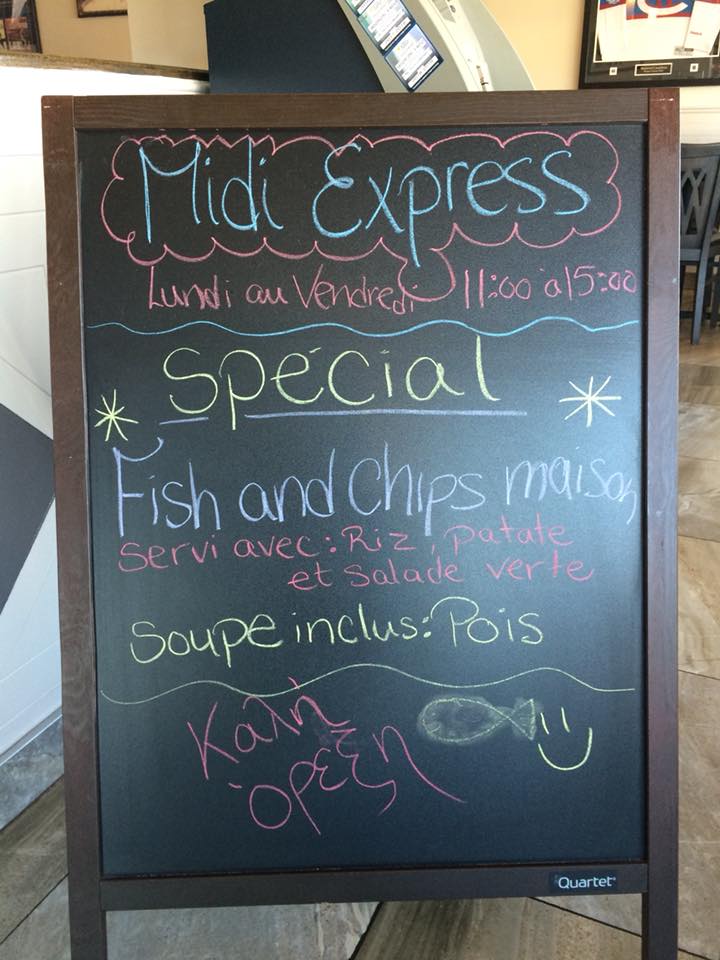 Midi Express
Lundi au Vendredi 11:00 à 15:00
Spécial
Fish and chips maison
servi avec: Riz, patate
et salade verte
Soupe inclus: Pois
Καλὴ
ὄρεξη
Quartet